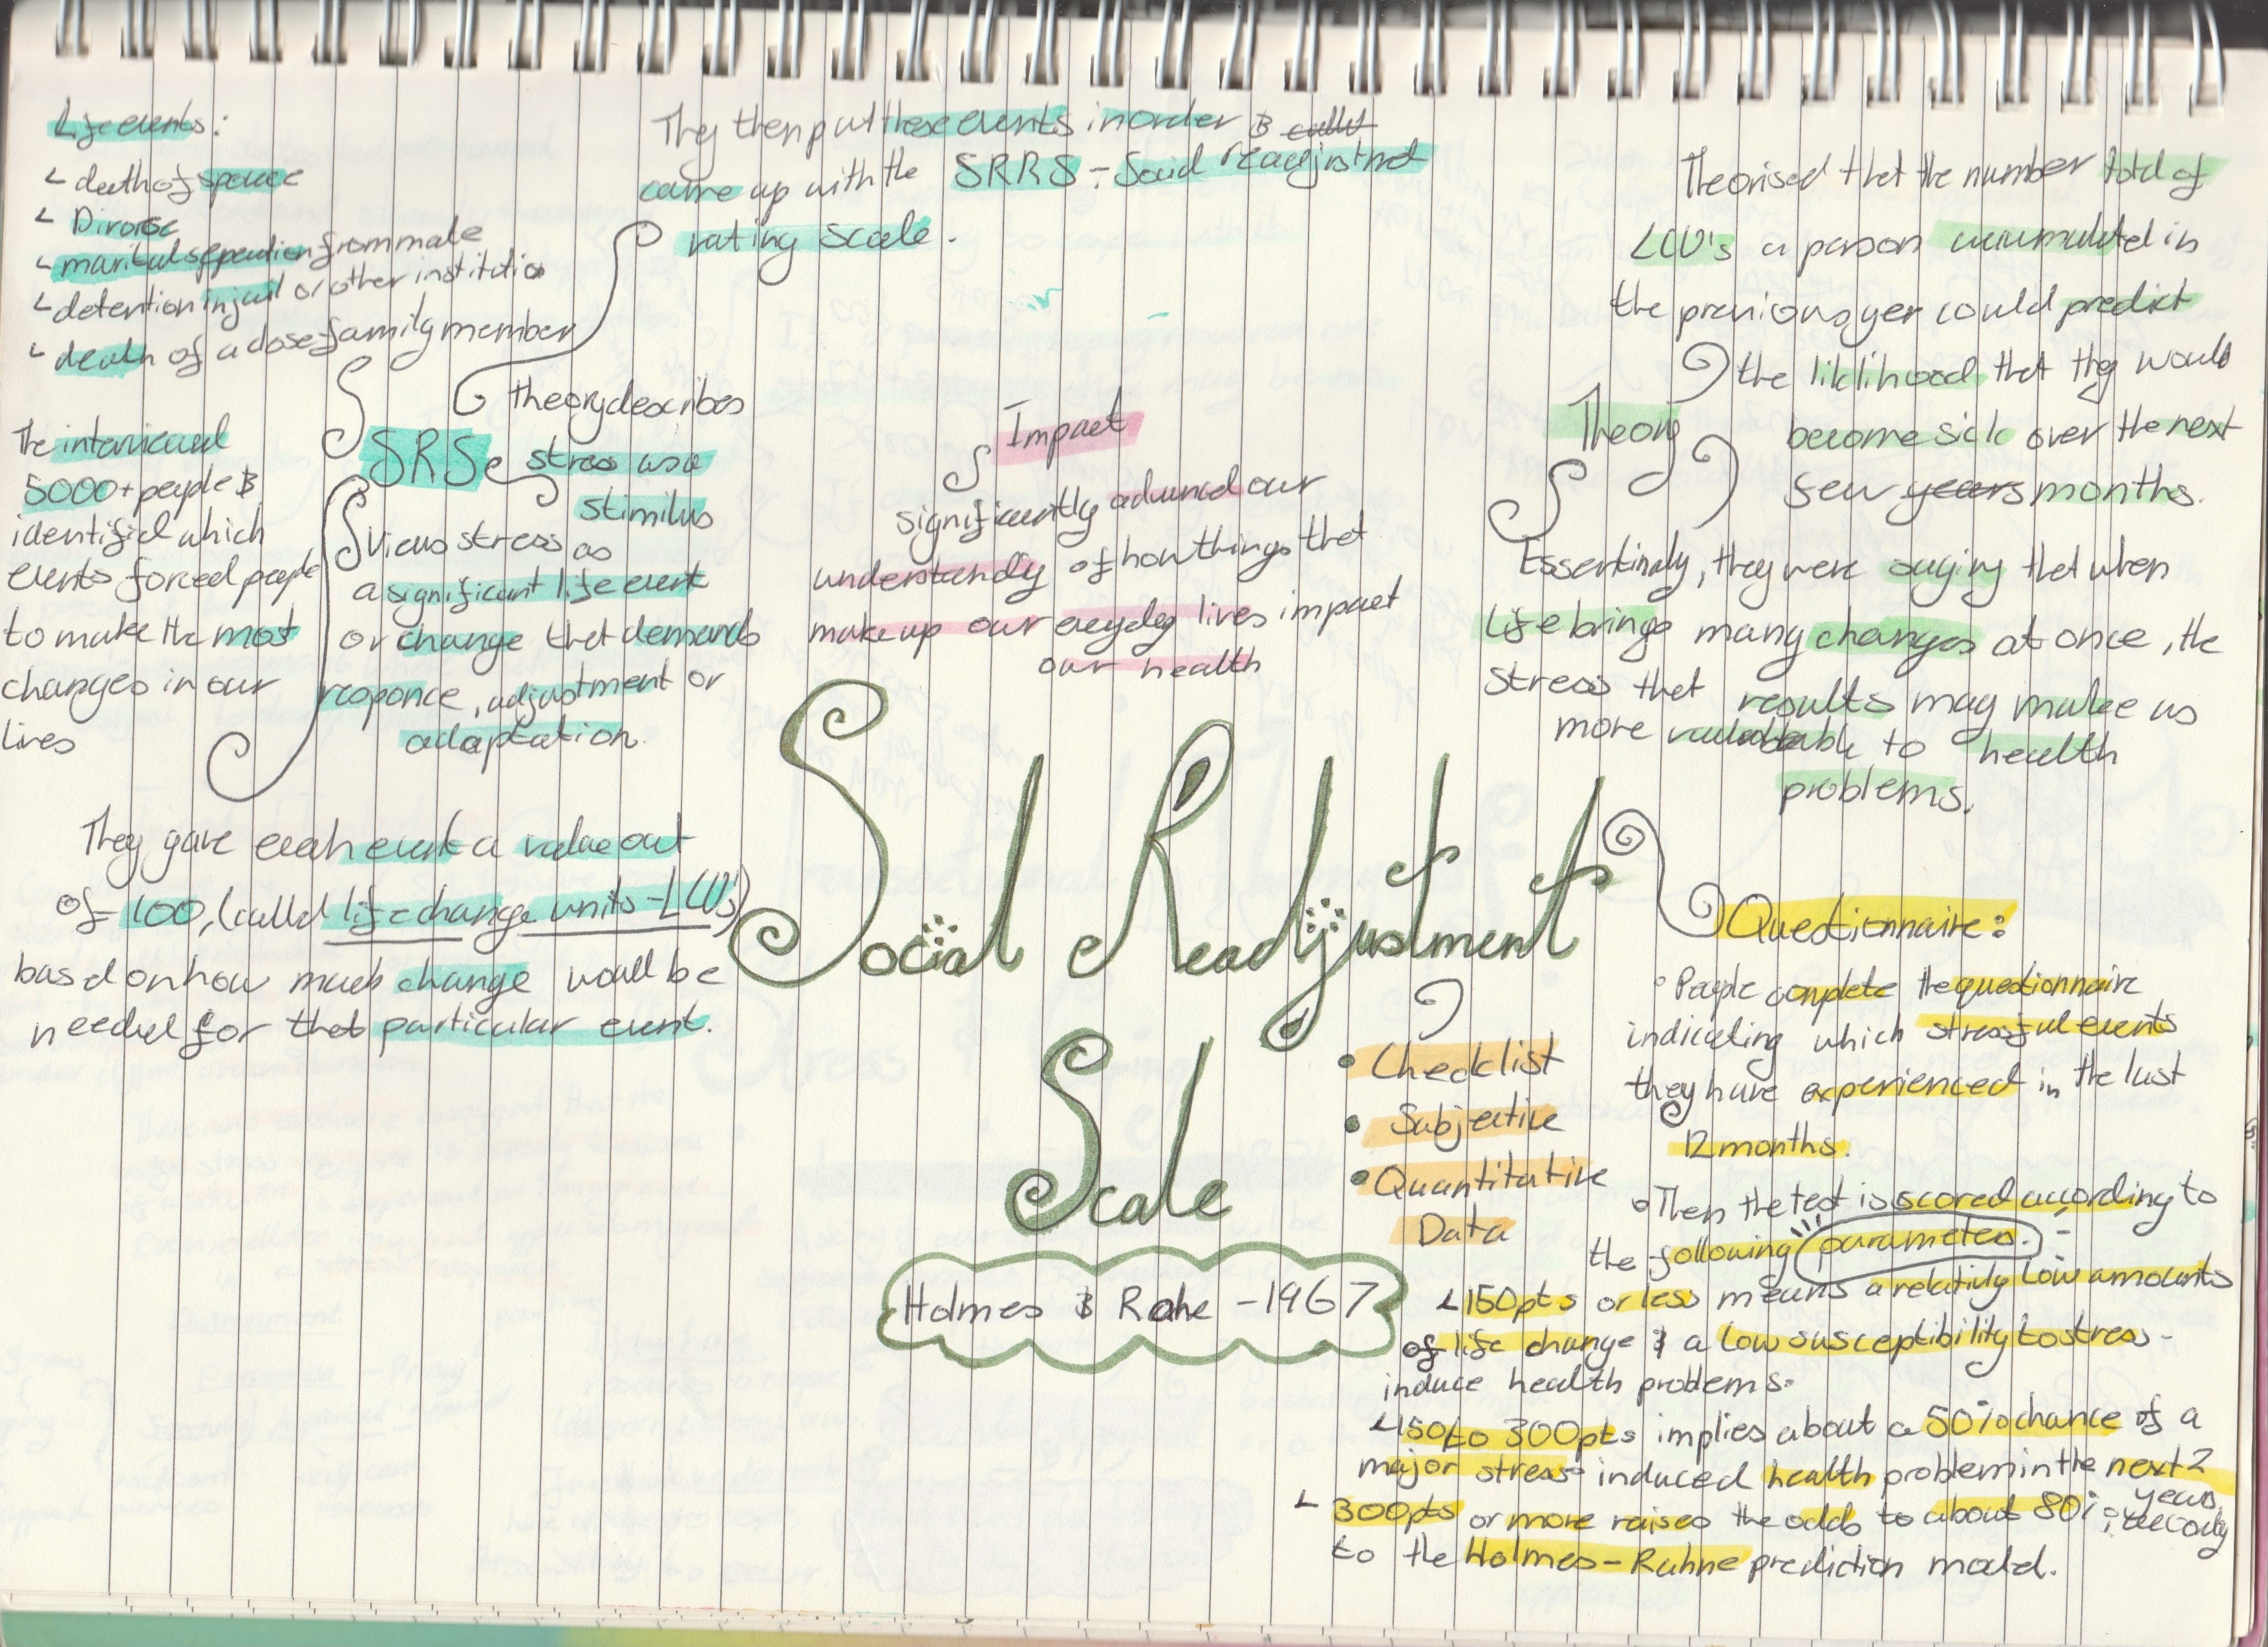 Life events:
↳ death of spouce
↳ Divorce
↳ marital sepertion from mate
↳ detention in jail or other institutio
↳ death of a close family member
They then put these events in order & called
came up with the SRRS - Social readjustmet
rating scale.
The interviewed
5000+ people &
identified which
events forced people
to make the most
changes in our
lives
SRS
theory describes
stress as a
stimilus
Views stress as
a significant life event
or change that demands
responce, adjustment or
adaptation.
They gave each event a value out
of 100, (called life change units - LCU's)
based on how much change would be
needed for that particular event.
Impact
significantly advanced our
understandig of how things that
make up our everyday lives impact
our health
Theory
Theorised that the number total of
LCU's a person accumulated in
the previous yer could predict
the liklihood that they would
become sick over the next
few years months.
Essentinaly, they were saying that when
life brings many changes at once, the
stress that results may make us
more to health
problems.
Social Readjustment
Scale
Holmes & Rahe - 1967
• Checklist
• Subjective
• Quantitative
Data
Questionnaire:
° People complete the questionnaire
indicating which stressful events
they have experienced in the last
12 months.
° Then the test is scored according to
the following parameters. :-
↳ 150pts or less means a relativly low amounts
of life change & a low susceptibility to stress-
induce health problems.
↳ 150 to 300pts implies about a 50% chance of a
major stress- induced health problem in the next 2
years.
↳ 300pts or more raises the odds to about 80%,
to the Holmes - Rahne prediction model.